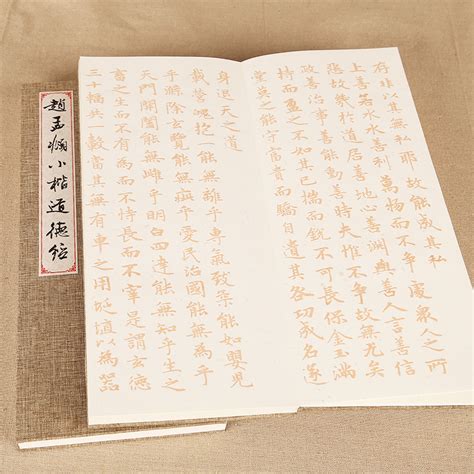 趙孟頫小楷道德經
存非以其無私耶故能成其私
上善若水水善利萬物而不爭處眾人之所
惡故幾於道居善地心善淵與善人言善信
政善治事善能動善時夫惟不爭故無尤矣
持而盈之不如其已揣而銳不可長保金玉滿
堂莫之能守富貴而驕自遺其咎功成名遂
身退天之道
載營魄抱一能無離乎專氣致柔能如嬰兒
乎滌除玄覽能無疵乎愛民治國能無為乎
天門開闔能無雌乎明白四達能無知乎生之
畜之生而不有為而不恃長而不宰是謂玄德
三十輻共一轂當其無有車之用埏埴以為器